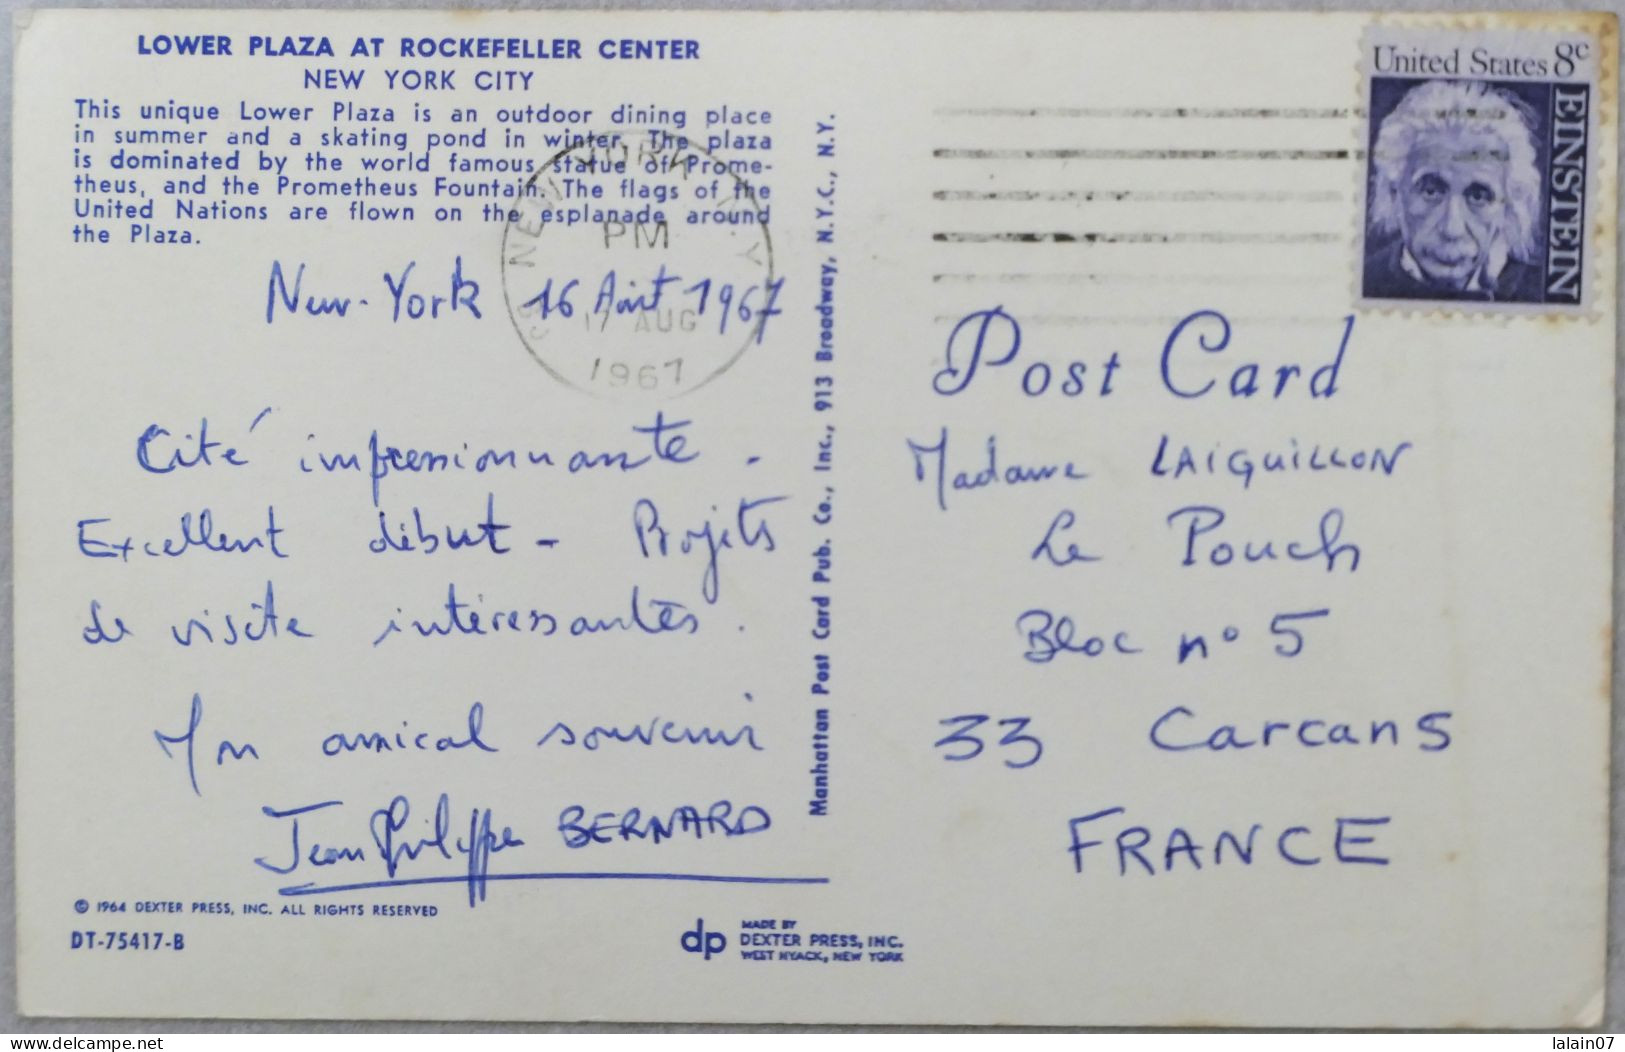 LOWER PLAZA AT ROCKEFELLER CENTER
NEW YORK CITY
This unique Lower Plaza is an outdoor dining place
in summer and a skating pond in winter. The plaza
is dominated by the world famous statue of Prome-
theus, and the Prometheus Fountain. The flags of the
United Nations are flown on the esplanade around
the Plaza.
NEW YORK N.Y.
PM
17 AUG
1967
New-York 16 Août 1967
Cité impressionnante -
Excellent début - Projets
de visite intéressantes.
Mon amical souvenir
Jean Philippe BERNARD
© 1964 DEXTER PRESS, INC. ALL RIGHTS RESERVED
DT-75417-B
Manhattan Post Card Pub. Co., Inc., 913 Broadway, N.Y.C., N.Y.
dp
MADE BY
DEXTER PRESS, INC.
WEST NYACK, NEW YORK
United States 8c
EINSTEIN
Post Card
Madame LAIGUILLON
Le Pouch
Bloc n° 5
33 Carcans
FRANCE
delcampe.net
lalain07